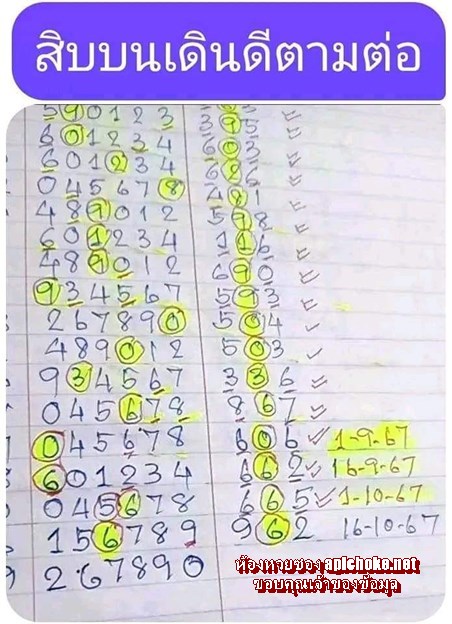 สิบบนเดินดีตามต่อ
590123 395
601234 603
601234 686
045678 481
489012 598
601234 116
489012 690
934567 593
267890 504
489012 503
934567 336
045678 867
045678 606 1-9-67
601234 662 16-9-67
045678 665 1-10-67
156789 962 16-10-67
2.67890
ห้องหวยซอง apichoke.net
ขอบคุณเจ้าของข้อมูล